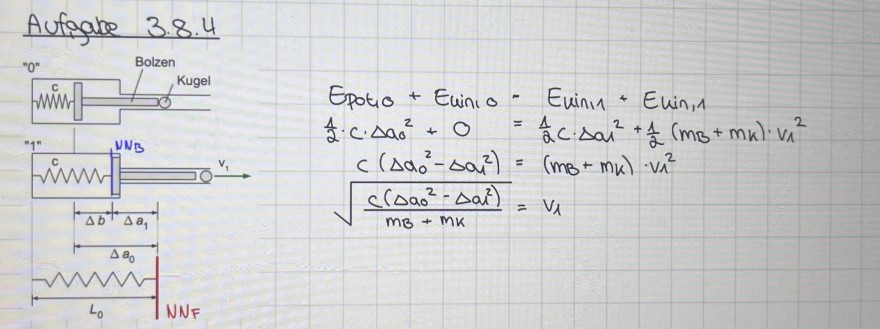 Aufgabe 3.8.4
"0"
Bolzen
c
Kugel
"1"
NNB
c
v₁
Δb
Δa₁
Δa₀
L₀
NNF
Epot,0 + Ekin,0 = Ekin,1 + Ekin,1
1/2 · c · Δa₀² + 0 = 1/2 c · Δa₁² + 1/2 (mB + mK) · v₁²
c (Δa₀² - Δa₁²) = (mB + mK) · v₁²
√(c(Δa₀² - Δa₁²) / (mB + mK)) = v₁